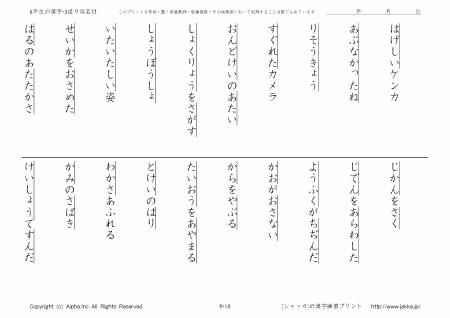 6年生の漢字-3送り仮名付
このプリントを学校・塾・家庭教師・医療機関・その他施設において利用することは禁じられています
年 月 日
はげしいケンカ
あぶなかったね
りそうきょう
すぐれたカメラ
おんどけいのあたい
しょくりょうをさがす
しょうぼうしょ
いたいたしい姿
せいかをおさめた
はるのあたたかさ
じかんをさく
じてんをあらわした
ようふくがちぢんだ
かおがおさない
からをやぶる
たいおうをあやまる
とけいのはり
わかさあふれる
かみのさばき
けいしょうですんだ
Copyright (c) Alpha.Inc All Rights Reserved.
9/10
[ジャッカ]の漢字練習プリント http://www.jakka.jp/